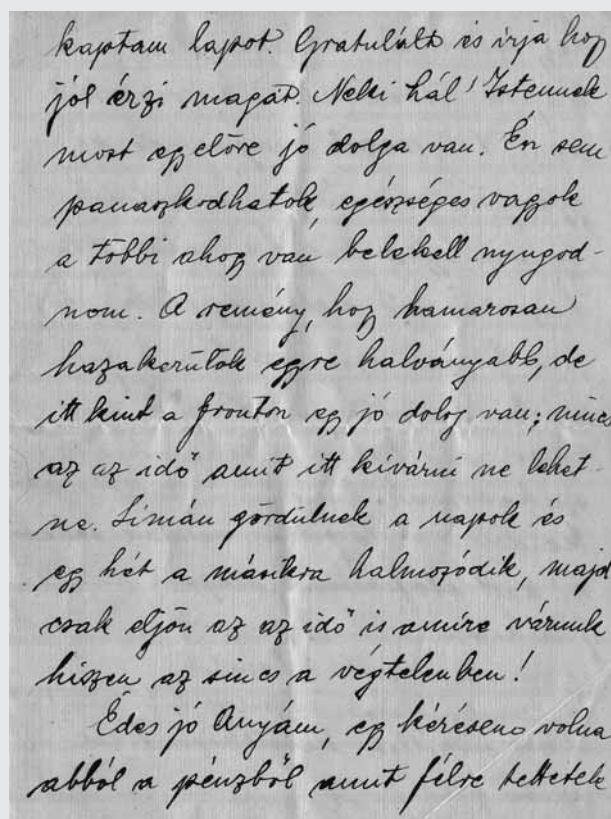 kaptam lapot. Gratulált és irja hog
jól érzi magát. Neki hál' Istennek
most egyelőre jó dolga van. Én sem
panaszkodhatok, egészséges vagyok
a többi ahog van belekell nyugod-
nom. A remény, hog hamarosan
hazakerülök egre halványabb, de
itt kint a fronton eg jó dolog van; nincs
az az idő amit itt kivárni ne lehet-
ne. Simán gördülnek a napok és
eg hét a másikra halmozódik, majd
csak eljön az az idő is amire várunk
hiszen az sincs a végtelenben!
Édes jó Anyám, eg kérésem volna
abból a pénzből amit félre tettetek